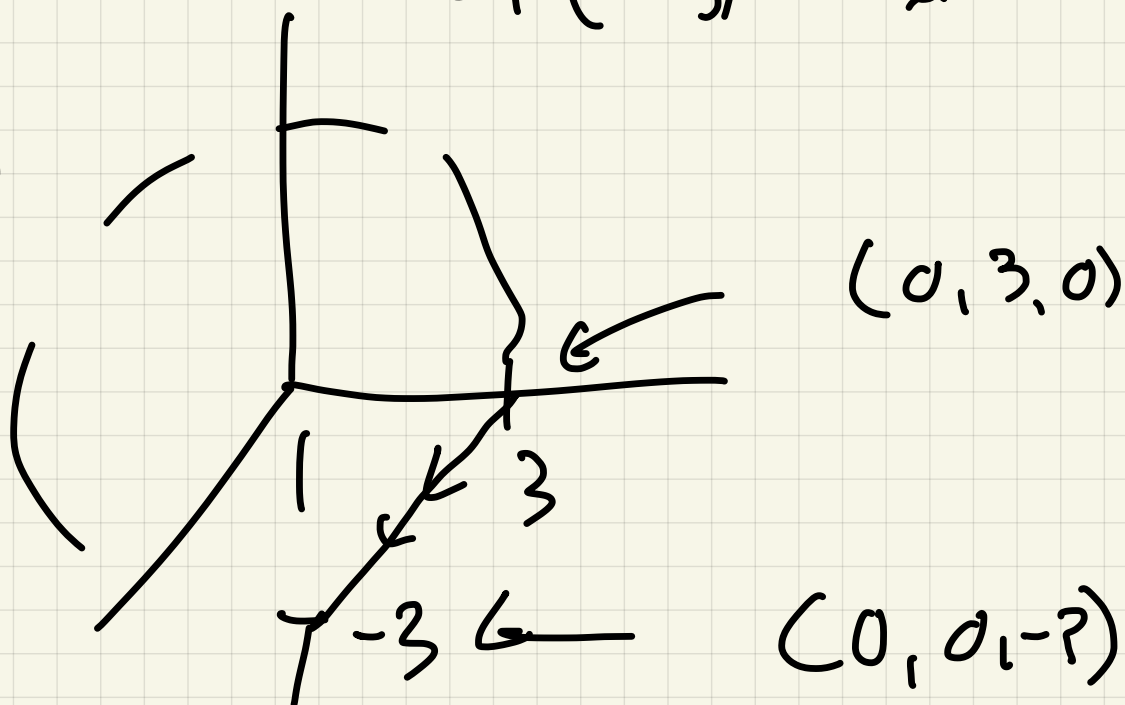 (0,3,0)
3
-3
(0,0,-3)